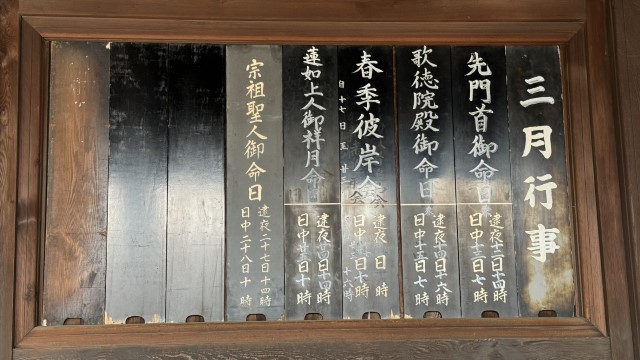 三月行事
先門首御命日
逮夜十二日十四時
日中十三日七時
歌徳院殿御命日
逮夜十四日十六時
日中十五日七時
春季彼岸会
自十七日至廿三
逮夜 日 時
日中 日十時
十六時
蓮如上人御祥月命
逮夜廿四日十四時
日中廿五日十時
宗祖聖人御命日
逮夜二十七日十四時
日中二十八日十時